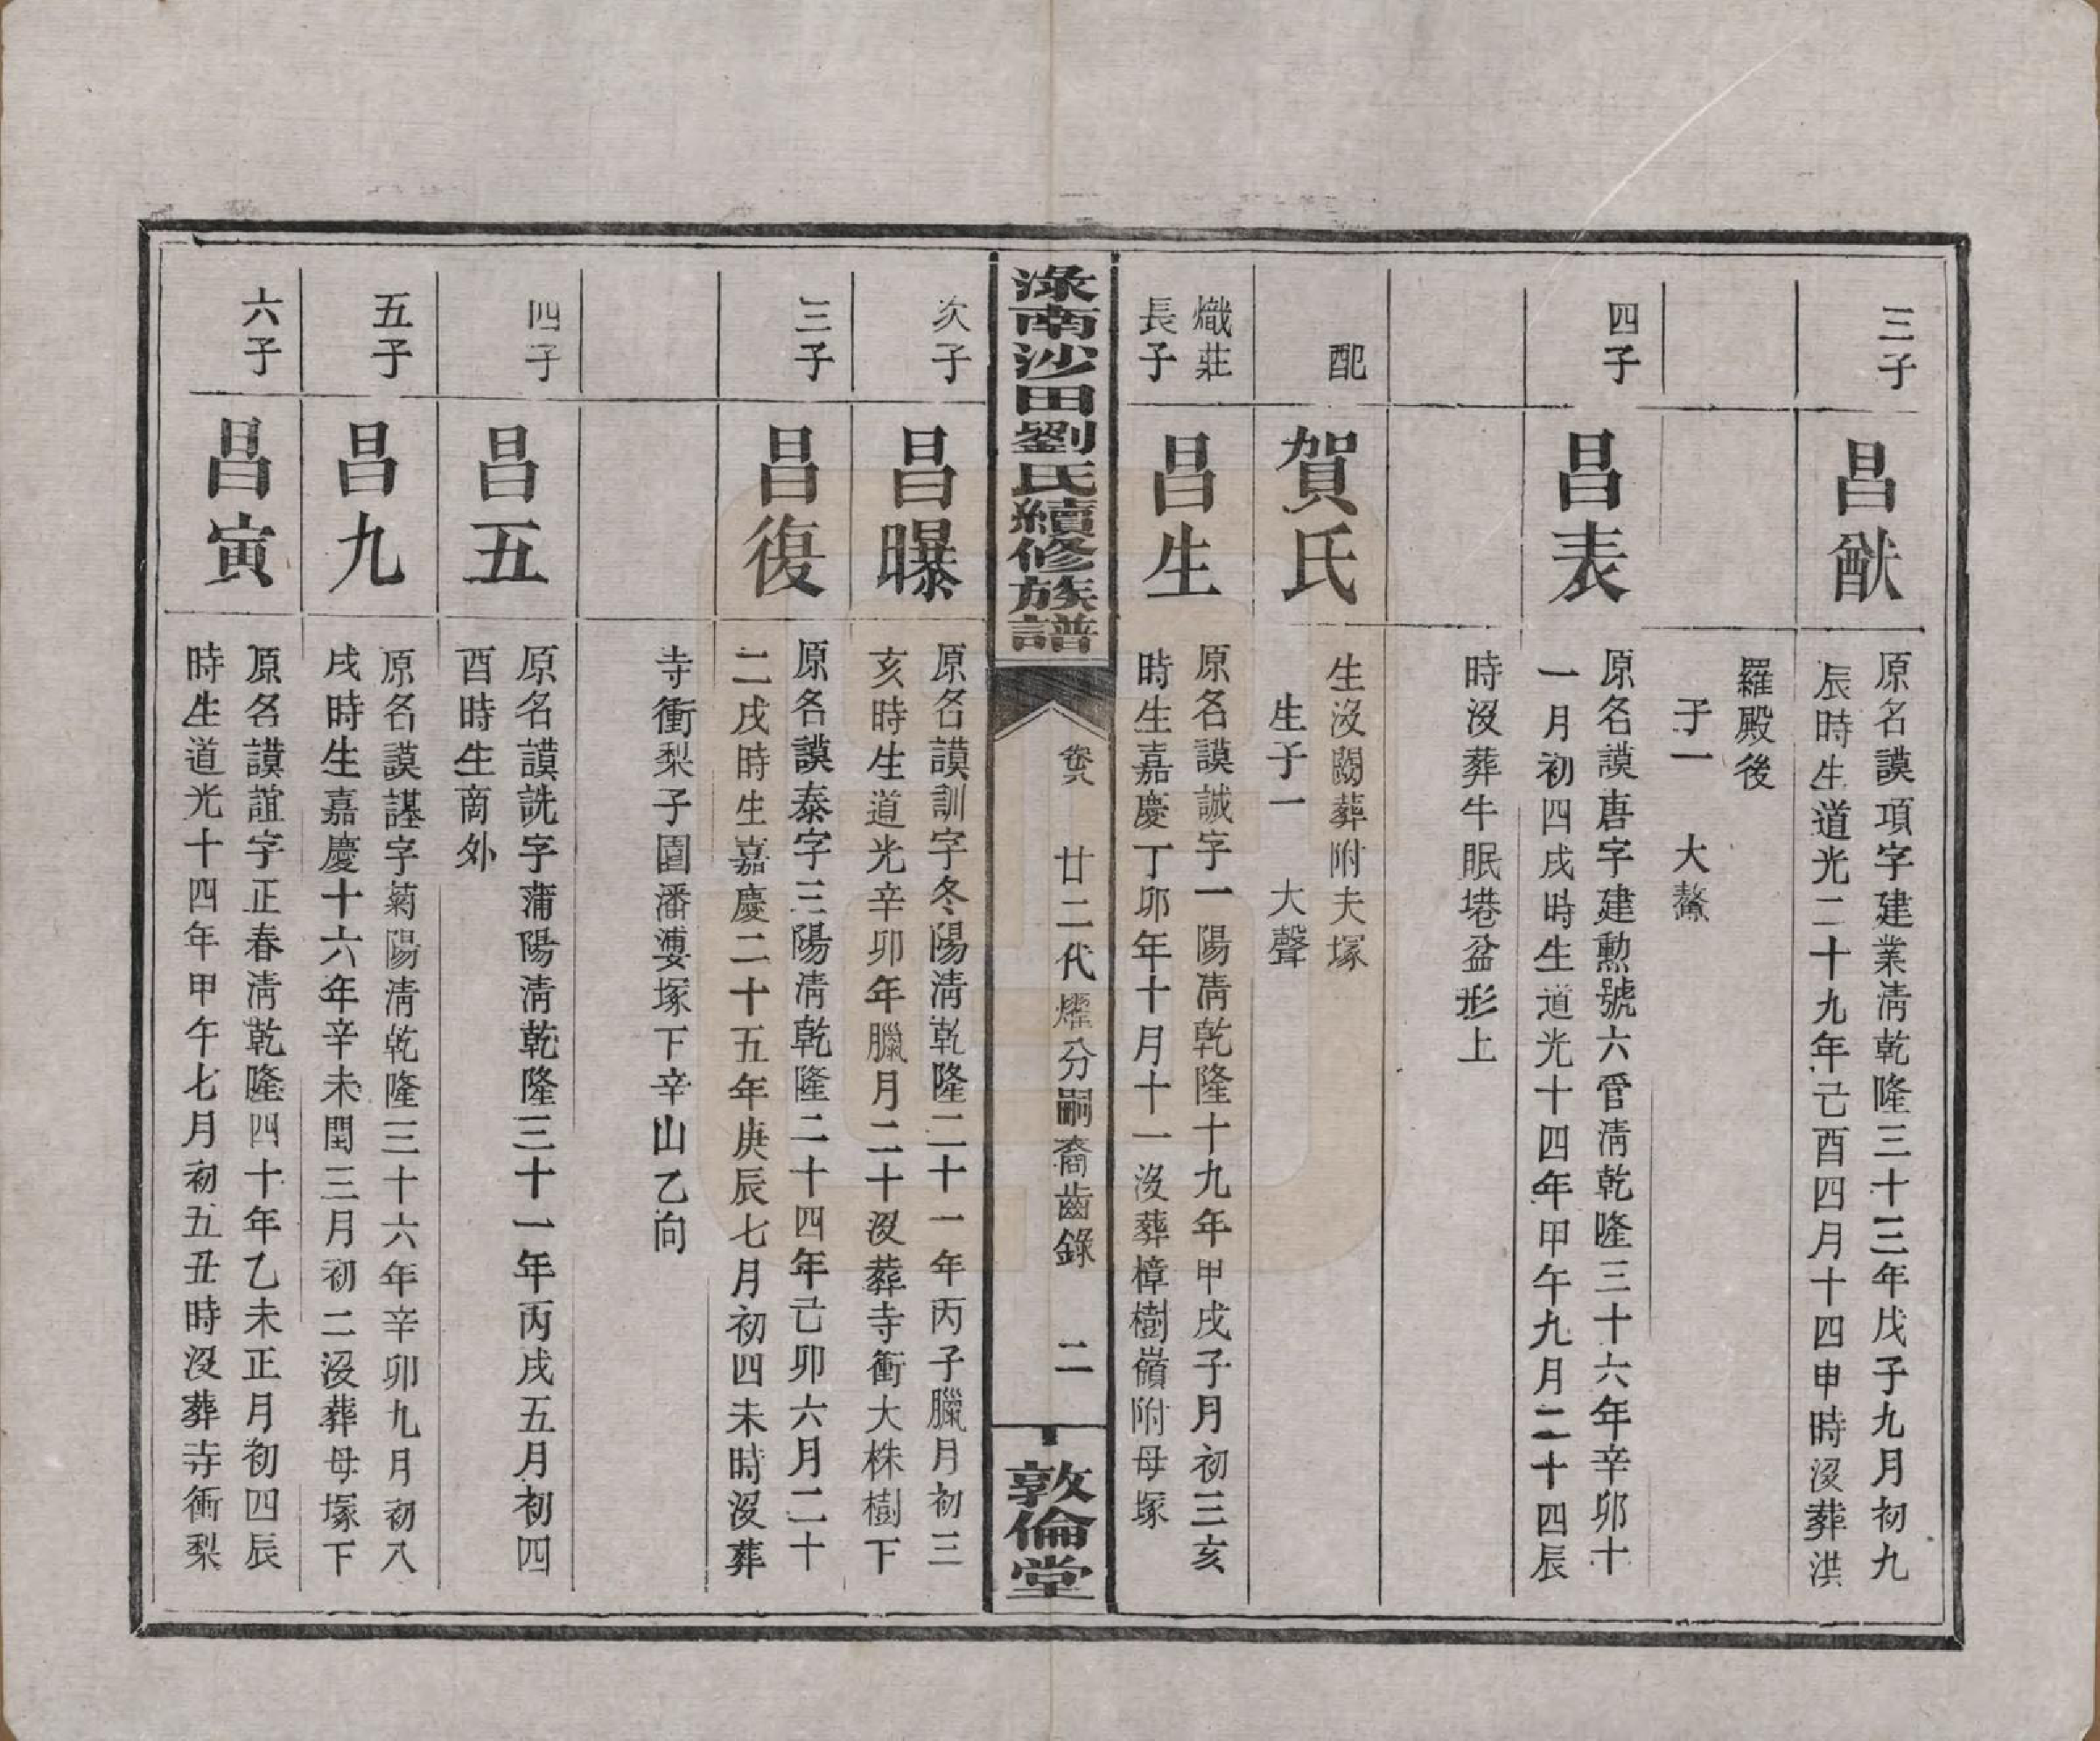 三子
昌猷
原名謨項字建業清乾隆三十三年戊子九月初九
辰時生道光二十九年己酉四月十四申時沒葬洪
羅殿後
子一 大鰲
四子
昌表
原名謨唐字建勲號六睿清乾隆三十六年辛卯十
一月初四戌時生道光十四年甲午九月二十四辰
時沒葬牛眠塂盆形上
配
賀氏
生沒闕葬附夫塚
生子一 大聲
熾莊
長子
昌生
原名謨誠字一陽清乾隆十九年甲戌子月初三亥
時生嘉慶丁卯年十月十一沒葬樟樹嶺附母塚
淥南沙田劉氏續修族譜
卷八 廿二代燿分嗣裔齒錄 二
敦倫堂
次子
昌曝
原名謨訓字冬陽清乾隆二十一年丙子臘月初三
亥時生道光辛卯年臘月二十沒葬寺衝大株樹下
三子
昌復
原名謨泰字三陽清乾隆二十四年己卯六月二十
二戌時生嘉慶二十五年庚辰七月初四未時沒葬
寺衝梨子園潘婆塚下辛山乙向
四子
昌五
原名謨詵字蒲陽清乾隆三十一年丙戌五月初四
酉時生商外
五子
昌九
原名謨諶字菊陽清乾隆三十六年辛卯九月初八
戌時生嘉慶十六年辛未閏三月初二沒葬母塚下
六子
昌寅
原名謨誼字正春清乾隆四十年乙未正月初四辰
時生道光十四年甲午七月初五丑時沒葬寺衝梨